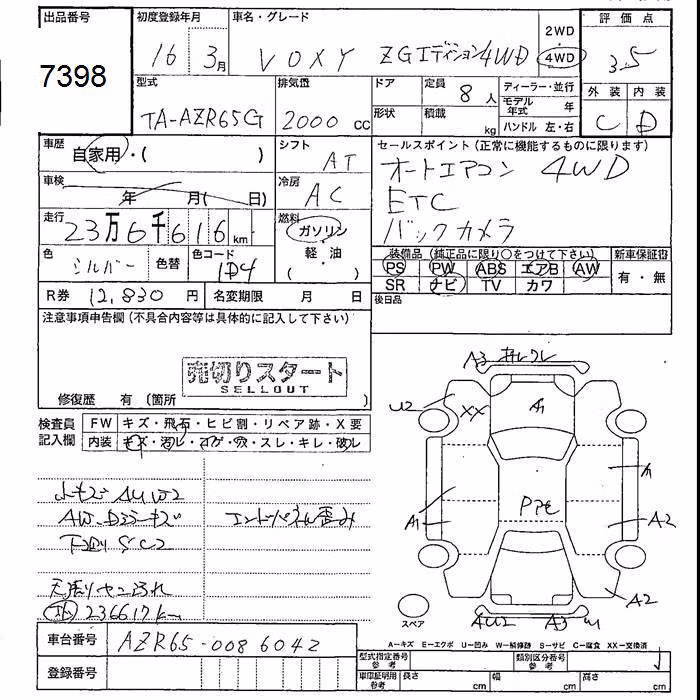 出品番号
7398
初度登録年月
16 3月
車名・グレード
VOXY ZGエディション4WD
2WD
4WD
評価点
3.5
型式
TA-AZR65G
排気量
2000 cc
ドア
形状
定員 8 人
積載 kg
ディーラー・並行
モデル年式 年
ハンドル 左・右
外装 内装
C D
車歴
自家用・( )
シフト
AT
セールスポイント(正常に機能するものに限ります)
オートエアコン 4WD
ETC
バックカメラ
車検
年 月( 日)
冷房
AC
走行
23万6千616 km
燃料
ガソリン
軽・油
( )
色
シルバー
色替
色コード
1D4
装備品(純正品に限り○をつけて下さい)
PS PW ABS エアB AW
SR ナビ TV カワ
新車保証書
有・無
R券 12,830 円
名変期限 月 日
後日品
注意事項申告欄(不具合内容等は具体的に記入して下さい)
売切りスタート
SELLOUT
修復歴 有(箇所
検査員記入欄
FW キズ・飛石・ヒビ割・リペア跡・X要
内装 キズ・汚レ・コゲ・穴・スレ・キレ・破レ
AW
エンドパネル歪み
下回りSC2
236617km
車台番号
AZR65-0086042
登録番号
A3 キレワレ
U2
XX
A1
A1
A1
A2
A2
Pアセ
スペア
A3
A=キズ E=エクボ U=凹み W=補修跡 S=サビ C=腐食 XX=交換済
型式指定番号
参考
類別区分番号
参考
車庫証明用
参考
長さ cm
幅 cm
高さ cm